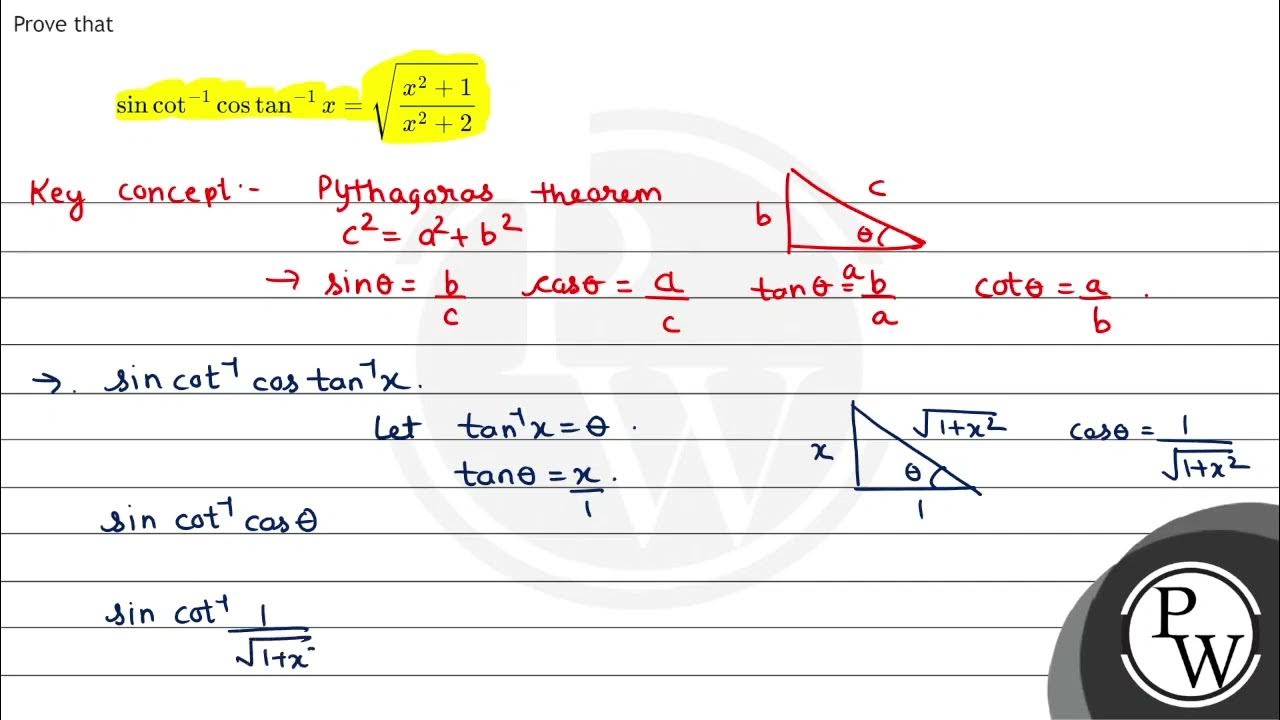 Prove that
sin cot⁻¹ cos tan⁻¹ x = √((x² + 1)/(x² + 2))
Key concept:- Pythagoras theorem
c² = a² + b²
b c θ a
→ sinθ = b/c cosθ = a/c tanθ = b/a cotθ = a/b .
→. sin cot⁻¹ cos tan⁻¹x.
Let tan⁻¹x = θ .
x √1+x² θ 1
cosθ = 1/√1+x²
tanθ = x/1 .
sin cot⁻¹ cosθ
sin cot⁻¹ 1/√1+x
P W
P W